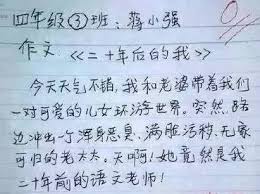 四年级③班：蒋小强
作文：《二十年后的我》
今天天气不错，我和老婆带着我们
一对可爱的儿女环游世界。突然，路
边冲出一个浑身恶臭，满脏活秽，无家
可归的老太太。天啊！她竟然是我
二十年前的语文老师！